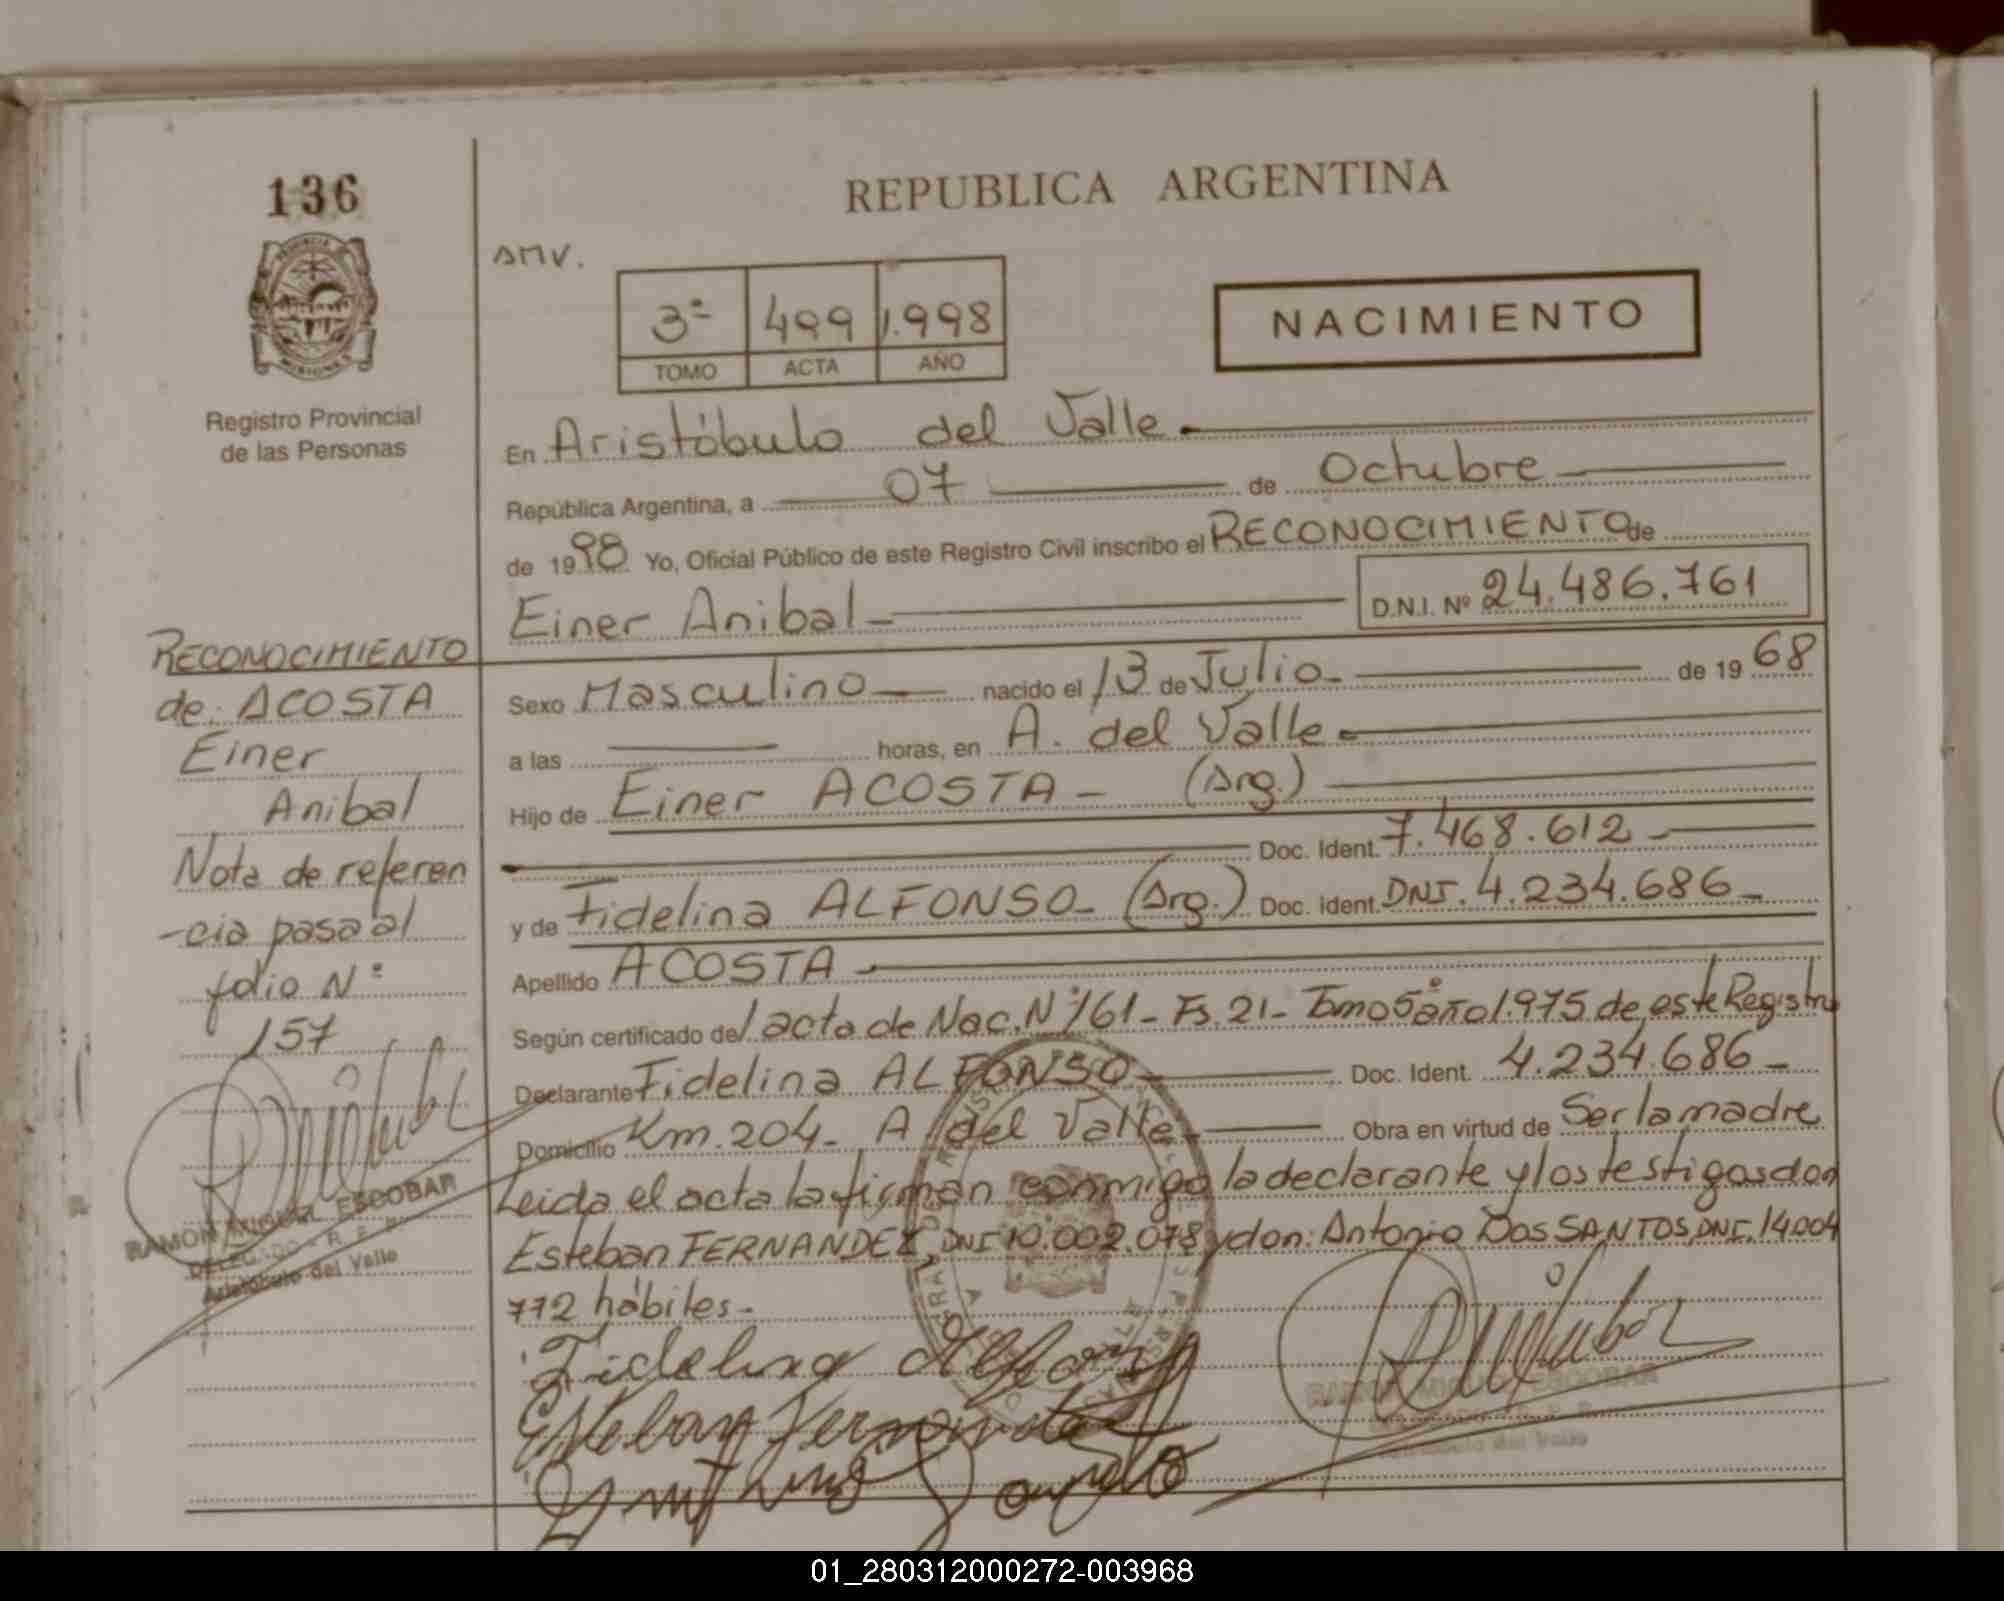 136
REPUBLICA ARGENTINA
AMV.
3º 499 1.998
TOMO ACTA AÑO
NACIMIENTO
Registro Provincial
de las Personas
En Aristóbulo del Valle
República Argentina, a 07 de Octubre
de 1998 Yo, Oficial Público de este Registro Civil inscribo el RECONOCIMIENTO de
Einer Anibal D.N.I. Nº 24.486.761
Sexo Masculino nacido el 13 de Julio de 1968
a las horas, en A. del Valle
Hijo de Einer ACOSTA - (Arg.)
Doc. Ident. 7.468.612
y de Fidelina ALFONSO - (Arg.) Doc. Ident. DNI. 4.234.686
Apellido ACOSTA
Según certificado del acta de Nac. Nº 161 - Fs. 21 - Tomo 5º año 1.975 de este Registro
Declarante Fidelina ALFONSO Doc. Ident. 4.234.686
Domicilio Km. 204 - A del Valle Obra en virtud de Ser la madre
Leida el acta la firman conmigo la declarante y los testigos don
Esteban FERNANDEZ, DNI 10.002.078 y don: Antonio DOS SANTOS, DNI. 14.004
772 hábiles.
Fidelina Alfonso
Esteban Fernandez
RAMON MIGUEL ESCOBAR
Aristóbulo del Valle
RECONOCIMIENTO
de: ACOSTA
Einer
Anibal
Nota de referen
-cia pasa al
folio Nº
157
RAMON MIGUEL ESCOBAR
DELEGADO - R. P.
Aristóbulo del Valle
01_280312000272-003968